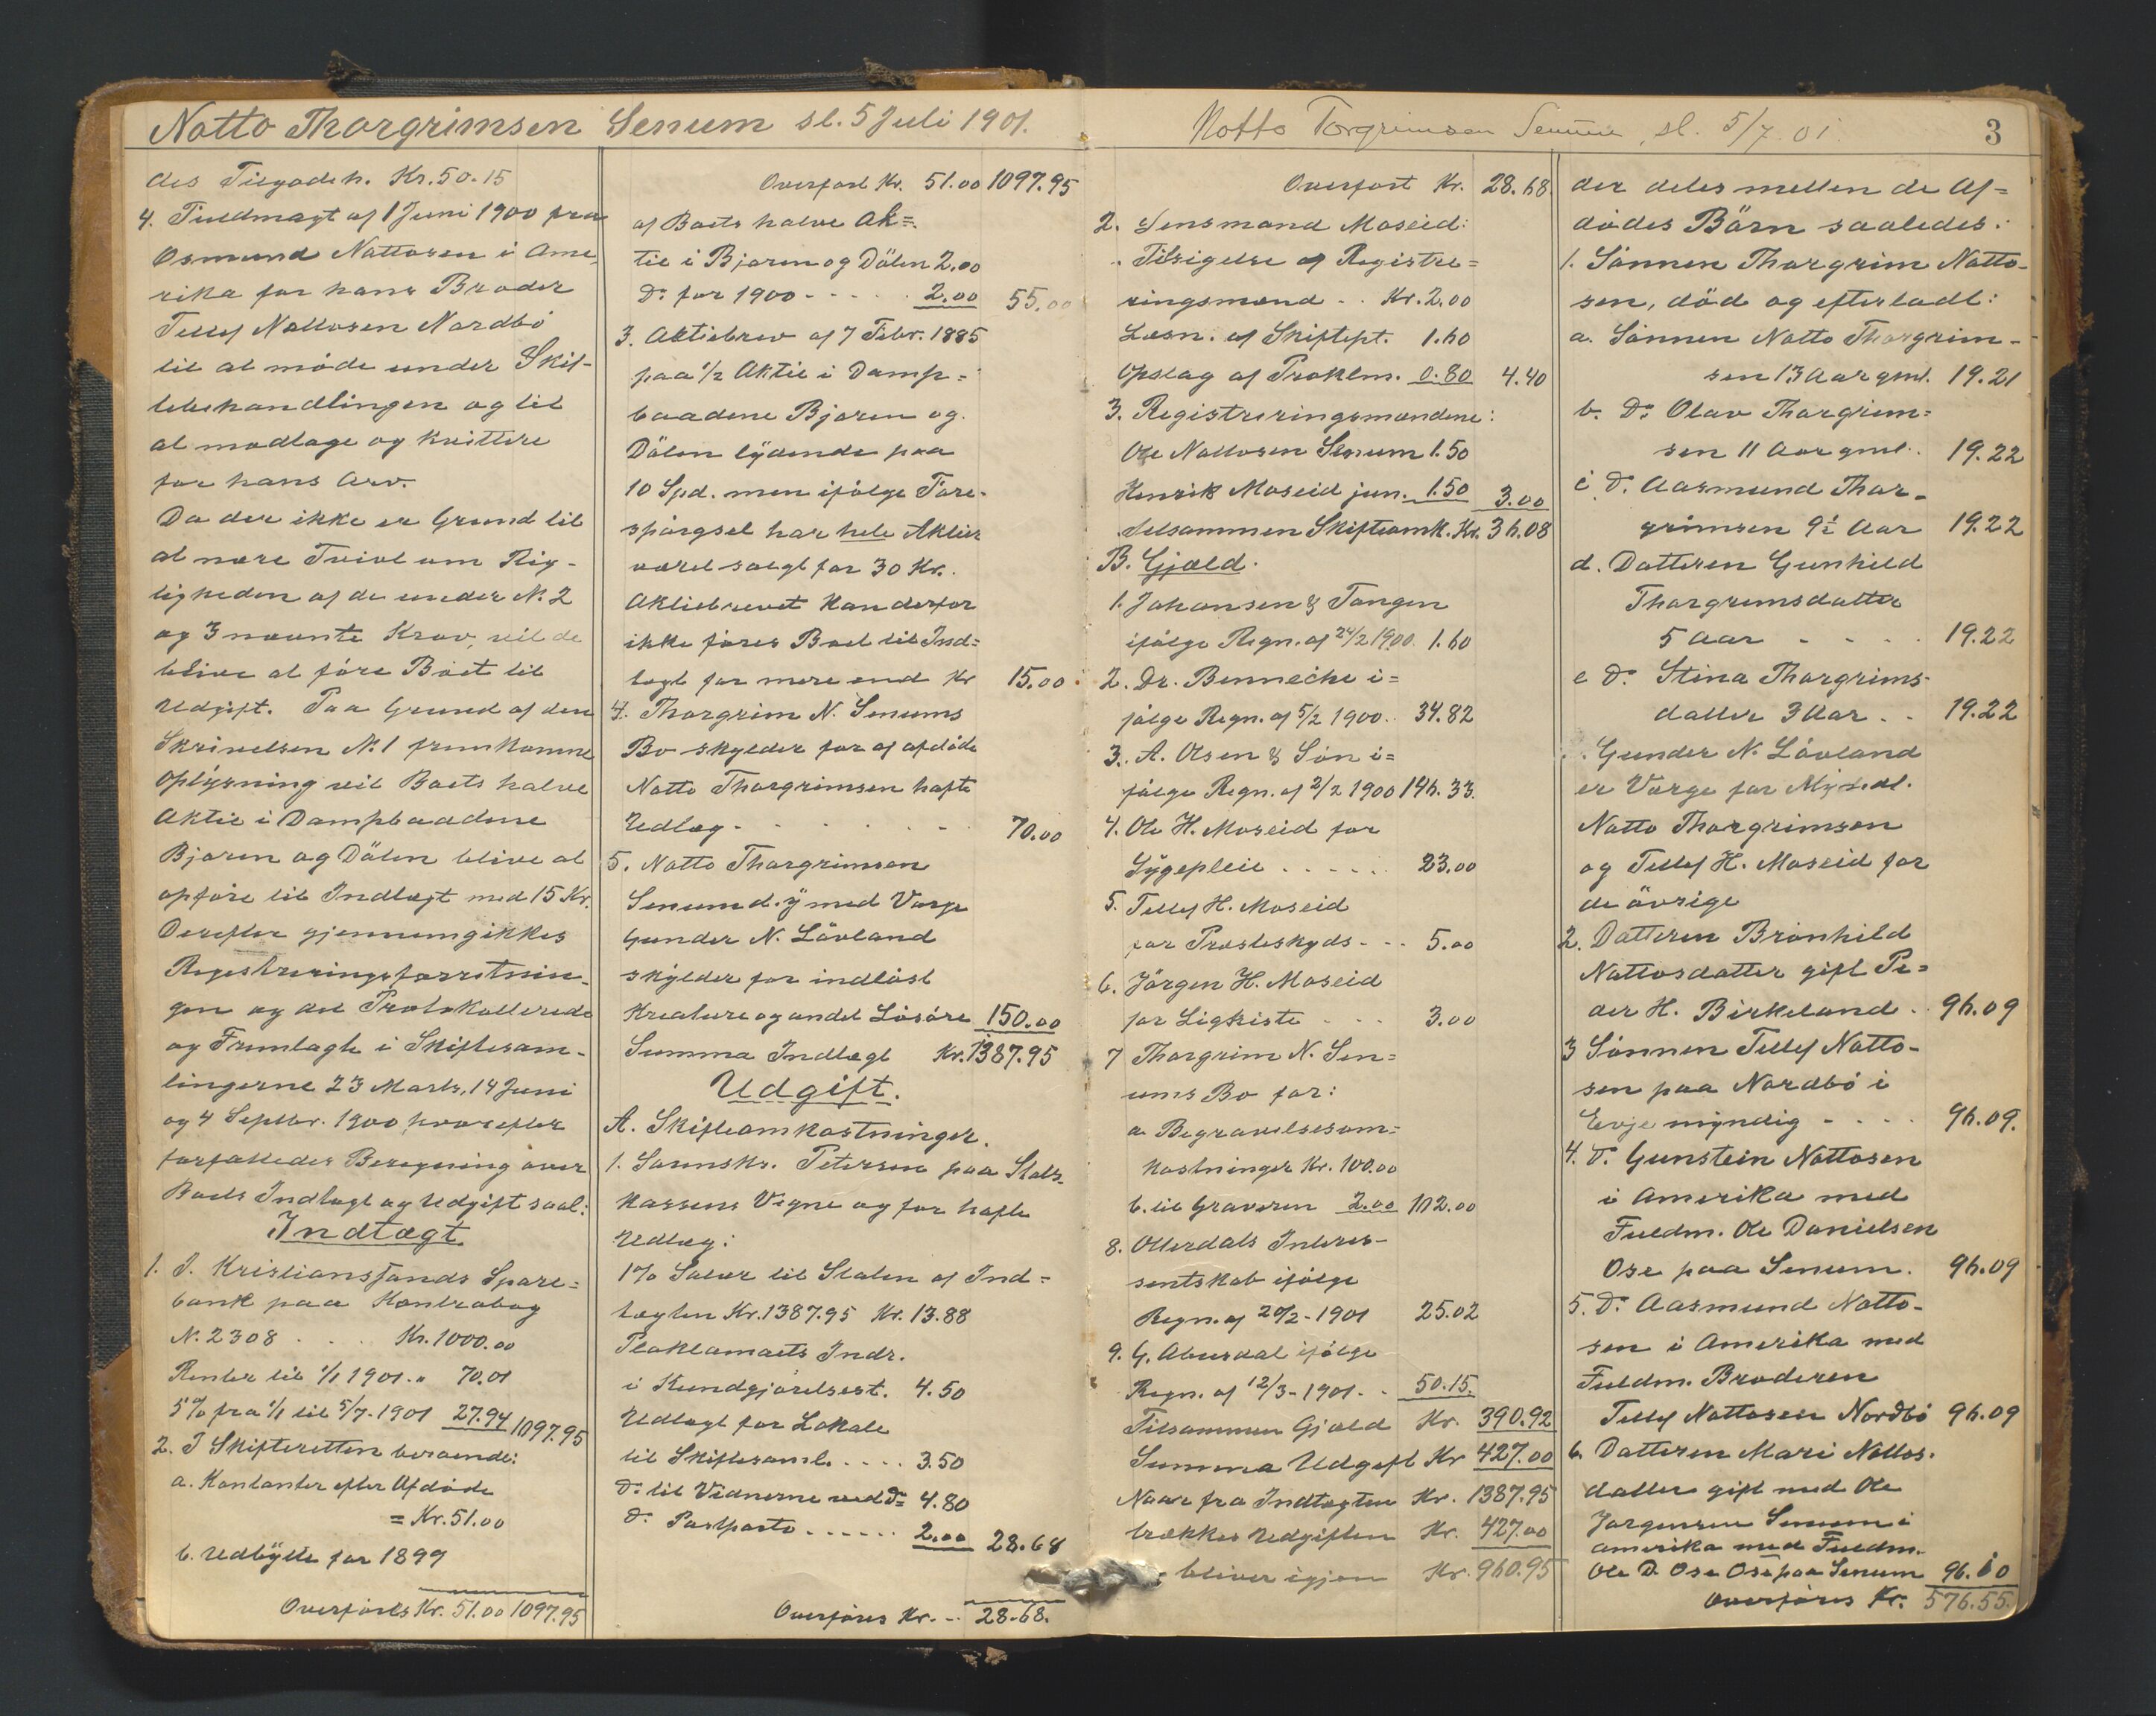 Notto Thorgrimsen Senum sl. 5 Juli 1901.
des Tilgodeh. Kr. 50.15
4. Fuldmagt af 1 Juni 1900 fra
Osmund Nottosen i Ame-
rika for hans Broder
Tellef Nottosen Nordbö
til at möde under Skif-
tebehandlingen og til
at modtage og kvittere
for hans Arv.
Da der ikke er Grund til
at nære Tvivl om Rig-
tigheden af de under N. 2
og 3 nævnte Krav, vil de
blive at före Boet til
Udgift. Paa Grund af den
Skrivelsen N. 1 fremkomne
Oplysning vil Boets halve
Aktie i Dampbaadene
Bjoren og Dölen blive at
opföre til Indtægt med 15 Kr.
Derefter gjennemgikkes
Registreringsforretnin-
gen og det Protokollerede
og Fremlagte i Skiftesam-
lingerne 23 Marts, 14 Juni
og 4 Septbr. 1900 hvorefter
forfattedes Beregning over
Boets Indtægt og Udgift saal:
Indtægt
1. I Kristianssands Spare=
bank paa Kontrabog
N. 2308 . . . Kr. 1000.00
Renter til 1/1 1901 . " 70.01
5% fra 1/1 til 5/7-1901 27.94 1097.95
2. I Skifteretten beroende:
a. Kontanter efter Afdöde
= Kr. 51.00
b. Udbytte for 1899
Overföres Kr. 51.00 1097.95
Overfört Kr. 51.00 1097.95
af Boets halve Ak=
tie i Bjoren og Dölen 2.00
Do for 1900 - - - - - 2.00 55.00
3. Aktiebrev af 7 Febr. 1885
paa 1/2 Aktie i Damp=
baadene Bjoren og
Dölen lydende paa
10 Spd. men ifölge Fore-
spörgsel har hele Aktier
været solgt for 30 Kr.
Aktiebrevet kan derfor
ikke föres Boet til Ind=
tægt for mere end Kr 15.00
4. Thorgrim N. Senums
Bo skylder for af afdöde
Notto Thorgrimsen hafte
Udlæg - - - - - 70.00
5. Notto Thorgrimsen
Senum d. y med Verge
Gunder N. Lövland
skylder for indlöst
Kreature og andet Lösöre 150.00
Summa Indtægt Kr. 1387.95
Udgift.
A. Skifteomkostninger.
1. Sorenskr. Petersen paa Stats-
kassens Vegne og for hafte
Udlæg:
1% Skat til Staten af Ind=
tægten Kr. 1387.95 Kr. 13.88
Proklamaets Indr.
i Kundgjörelsest. 4.50
Udlagt for Lokale
til Skiftesaml. . . . . 3.50
Do til Vidnerne ved Do 4.80
Do Postporto . . . . . . 2.00 28.68
Overföres Kr. .. 28.68.
Notto Torgrimsen Senum, sl. 5/7 01. 3
Overfört Kr. 28.68
2. Lensmand Moseid:
Tilsigelse af Registre=
ringsmænd . . Kr. 2.00
Læsn. af Skiftept. 1.60
Opslag af Proklm. 0.80 4.40
3. Registreringsmændene:
Ole Nottosen Senum 1.50
Henrik Moseid jun. 1.50 3.00
tilsammen Skifteomk. Kr. 36.08
B. Gjæld.
1. Johansen & Tangen
ifölge Regn. af 24/2 1900. 1.60
2. Dr. Bennecke i=
fölge Regn. af 5/2 1900.. 34.82
3. A. Olsen & Sön i=
fölge Regn. af 2/2 1900 146.33.
4. Ole H. Moseid for
Sygepleie . . . . . . 23.00
5. Tellef H. Moseid
for Presteskyds - - . 5.00
6. Jörgen H. Moseid
for Ligkiste . - - 3.00
7 Thorgrim N. Sen=
ums Bo for:
a Begravelsesom=
kostninger Kr. 100.00
b. til Graveren 2.00 102.00
8. Otterdals Interes-
sentskab ifölge
Regn. af 20/2-1901 25.02
9. G. Abusdal ifölge
Regn. af 12/3-1901. . 50.15.
Tilsammen Gjæld Kr. 390.92
Summa Udgift Kr 427.00
Naar fra Indtægten Kr. 1387.95
trækkes Udgiften Kr. 427.00
bliver igjen Kr. 960.95
der deles mellem de Af=
dödes Börn saaledes:
1. Sönnen Thorgrim Notto-
sen, död og efterladt:
a. Sönnen Notto Thorgrim-
sen 13 Aar gml. 19.21
b. Do Olav Thorgrim=
sen 11 Aar gml. 19.22
c Do Aasmund Thor-
grimsen 9½ Aar 19.22
d. Datteren Gunhild
Thorgrimsdatter
5 Aar - - - - 19.22
e Do Stina Thorgrims-
datter 3 Aar . . 19.22
Gunder N. Lövland
er Værge for Myndl.
Notto Thorgrimsen
og Tellef H. Moseid for
de övrige
2. Datteren Brönhild
Nottosdatter gift Pe=
der H. Birkeland . . 96.09
3 Sönnen Tellef Notto-
sen paa Nordbö i
Evje myndig - - - - 96.09.
4. Do Gunstein Nottosen
i Amerika med
Fuldm. Ole Danielsen
Ose paa Senum. 96.09
5. Do Aasmund Notto-
sen i Amerika med
Fuldm. Broderen
Tellef Nottosen Nordbö 96.09
6. Datteren Mari Nottos-
datter gift med Ole
Jorgensen Senum i
Amerika med Fuldm.
Ole D. Ose Ose paa Senum 96.10
Overföres Kr. 576.55.